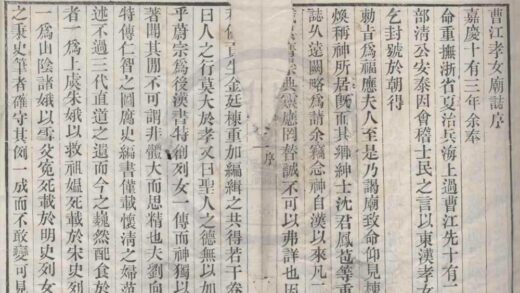 曹江孝女廟誌序
嘉慶十有三年余奉
命重撫浙省夏治兵海上過曹江先十有一
部清公安泰因會稽士民之言以東漢孝女
乞封號於朝得
勅吉為福應夫人至是乃謁廟致命仰見棟
煥稱神所居既而其鄉紳士沈君鳳苞等重
誌久遠闕略為請余竊念神自漢以來凡二
典靈應罔替誠不可以弗詳也因
貢生金廷棟重加編緝之共得若干卷
曰人之行莫大於孝又曰聖人之德無以加
乎蔚宗為後漢書特創列女一傳而神獨以
著聞其開不可謂非體大而思精也夫劉向
特傳仁智之圖腐史編書僅載懷清之婦范
述不過三代直道之遺而今之巍然配食於
者一為上虞朱娥以救祖媼死載於宋史列
一為山陰諸娥以雪父冤死載於明史列女
之秉史筆者確守其例一成而不敢變可見
序
一